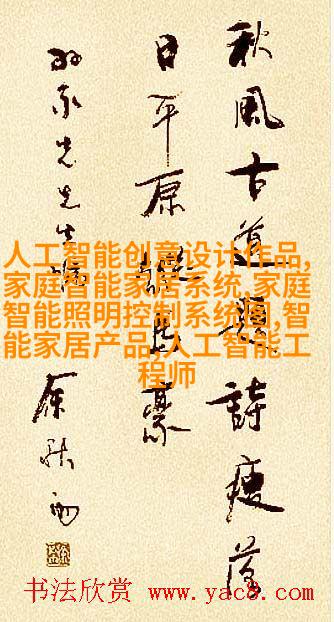 秋風古道題詩瘦落
日平原縱馬豪
先生
余秋雨
人工智能创意设计作品,
家庭智能家居系统,家庭
智能照明控制系统图,智
能家居产品,人工智能工
程师
书法欣赏 www.yac8.com